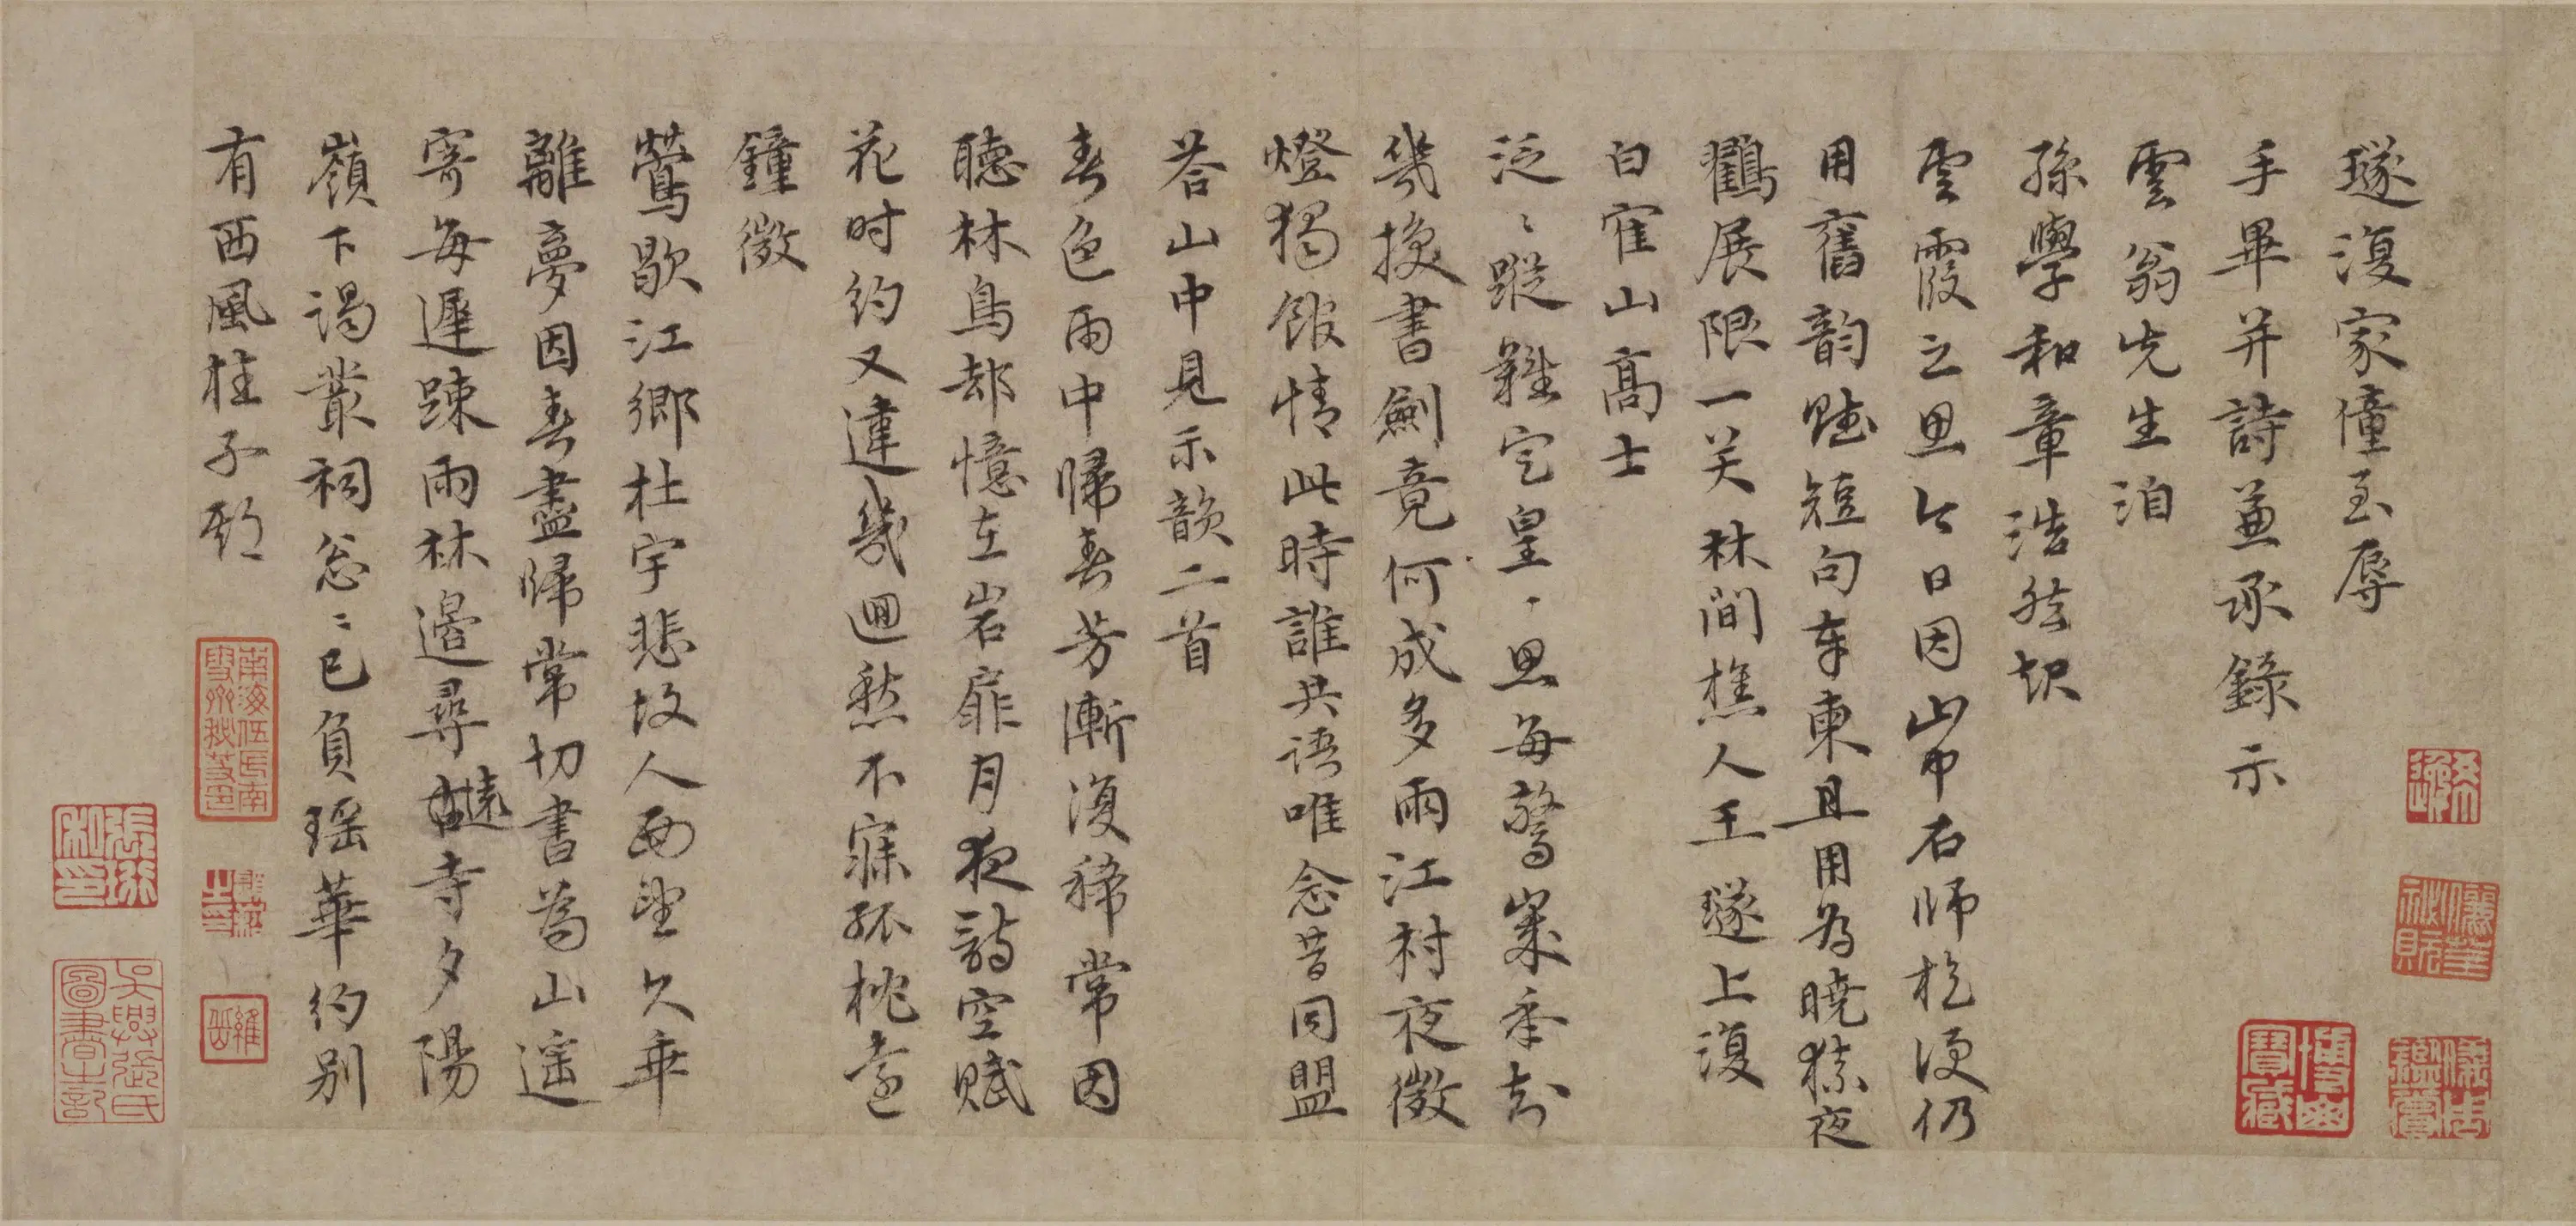 璲復家僮至辱
手畢并詩兼承錄示
雲翁先生洎
孫學和章浩然起
雲霞之思今日因岩中石師柁便仍
用舊韵賦短句奉柬且用為曉猿夜
鶴展限一笑林間樵人王璲上復
白雀山高士
泛〻蹤難定皇〻思每驚業
幾換書劍竟何成多雨江村夜微
燈獨館情此時誰共語唯念昔同盟
荅山中見示韻二首
春色雨中歸春芳漸復稀常因
聽林鳥却憶在岩扉月夜詩空賦
花时約又違幾迴愁不寐孤枕遠
鐘微
鶯歇江鄉杜宇悲故人西望久乖
離夢因春盡歸常切書為山遙
寄每遲踈雨林邉尋遠寺夕陽
嶺下謁叢祠忩〻已負瑶華約別
有西風桂子期